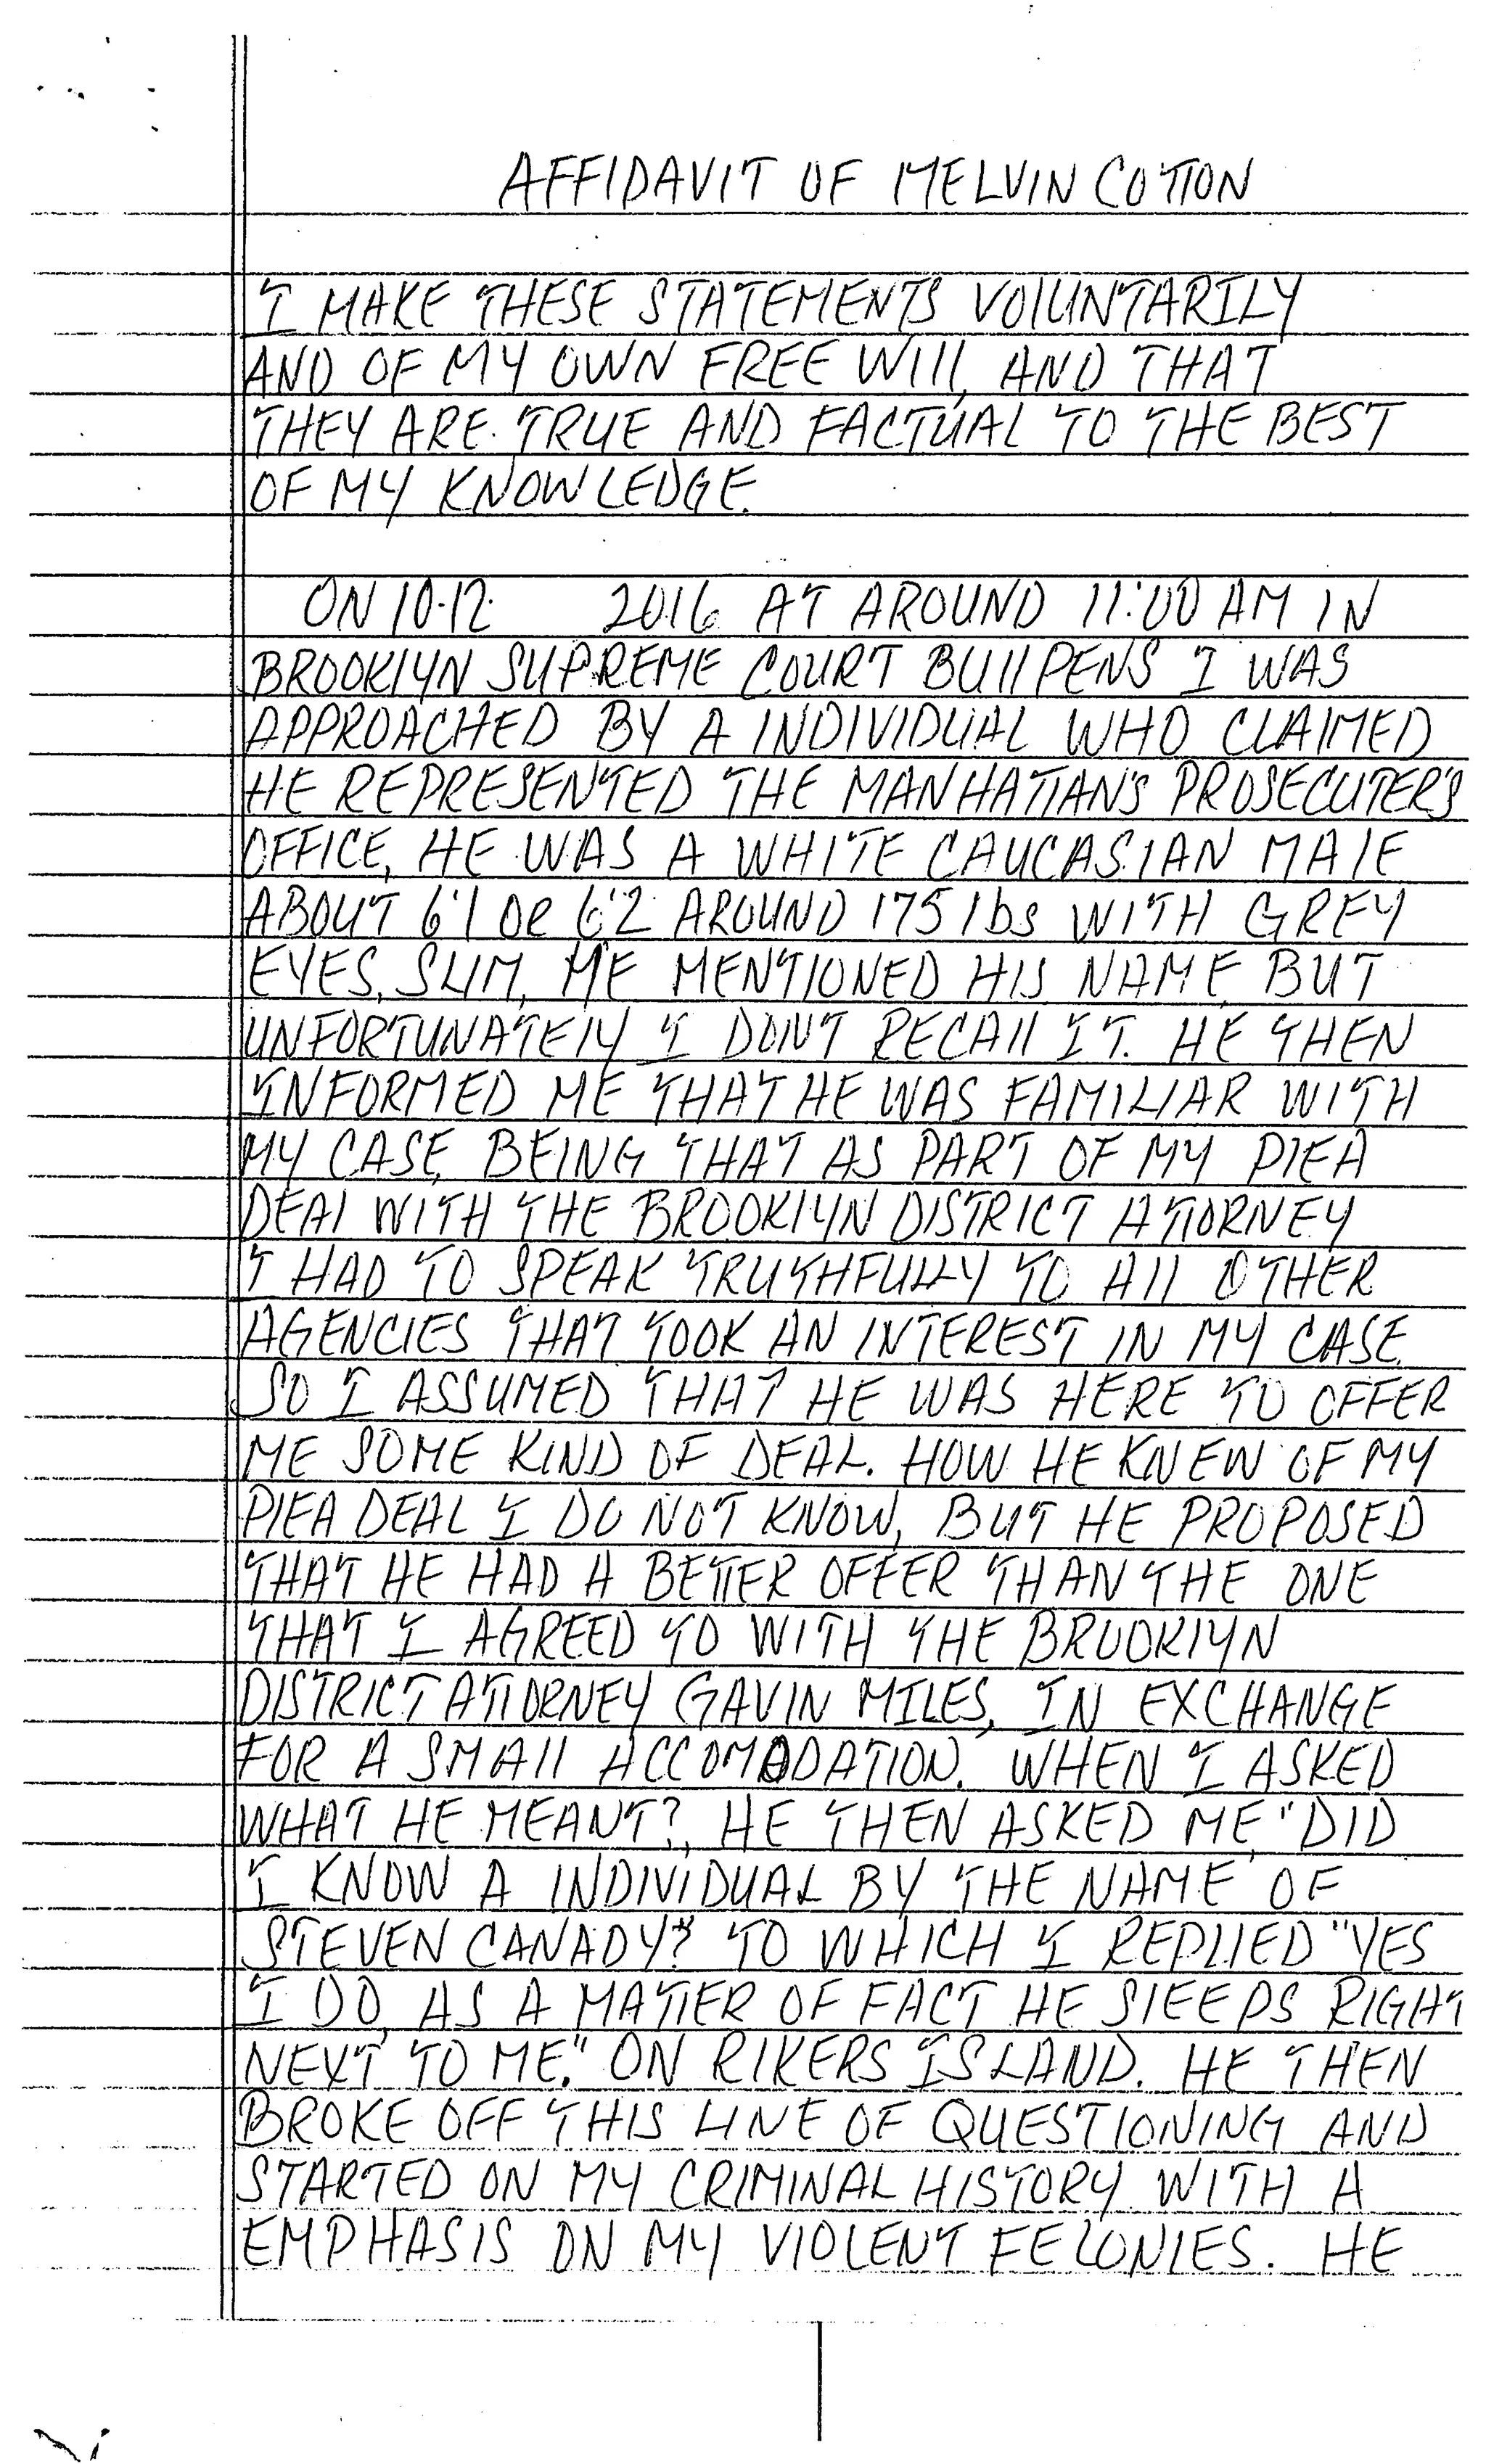 AFFIDAVIT OF MELVIN COTTON
I MAKE THESE STATEMENTS VOLUNTARILY
AND OF MY OWN FREE WILL, AND THAT
THEY ARE TRUE AND FACTUAL TO THE BEST
OF MY KNOWLEDGE.
ON 10-12 2016 AT AROUND 11:00 AM IN
BROOKLYN SUPREME COURT BULLPENS I WAS
APPROACHED BY A INDIVIDUAL WHO CLAIMED
HE REPRESENTED THE MANHATTANS PROSECUTER'S
OFFICE, HE WAS A WHITE CAUCASIAN MALE
ABOUT 6'1 OR 6'2 AROUND 175 lbs WITH GREY
EYES, SLIM, HE MENTIONED HIS NAME, BUT
UNFORTUNATELY I DON'T RECALL IT. HE THEN
INFORMED ME THAT HE WAS FAMILIAR WITH
MY CASE, BEING THAT AS PART OF MY PLEA
DEAL WITH THE BROOKLYN DISTRICT ATTORNEY
I HAD TO SPEAK TRUTHFULLY TO ALL OTHER
AGENCIES THAT TOOK AN INTEREST IN MY CASE.
SO I ASSUMED THAT HE WAS HERE TO OFFER
ME SOME KIND OF DEAL. HOW HE KNEW OF MY
PLEA DEAL I DO NOT KNOW, BUT HE PROPOSED
THAT HE HAD A BETTER OFFER THAN THE ONE
THAT I AGREED TO WITH THE BROOKLYN
DISTRICT ATTORNEY GAVIN MILES, IN EXCHANGE
FOR A SMALL ACCOMODATION. WHEN I ASKED
WHAT HE MEANT?, HE THEN ASKED ME, "DID
I KNOW A INDIVIDUAL BY THE NAME OF
STEVEN CANADY?" TO WHICH I REPLIED "YES
I DO, AS A MATTER OF FACT HE SLEEPS RIGHT
NEXT TO ME." ON RIKERS ISLAND. HE THEN
BROKE OFF THIS LINE OF QUESTIONING AND
STARTED ON MY CRIMINAL HISTORY WITH A
EMPHASIS ON MY VIOLENT FELONIES. HE